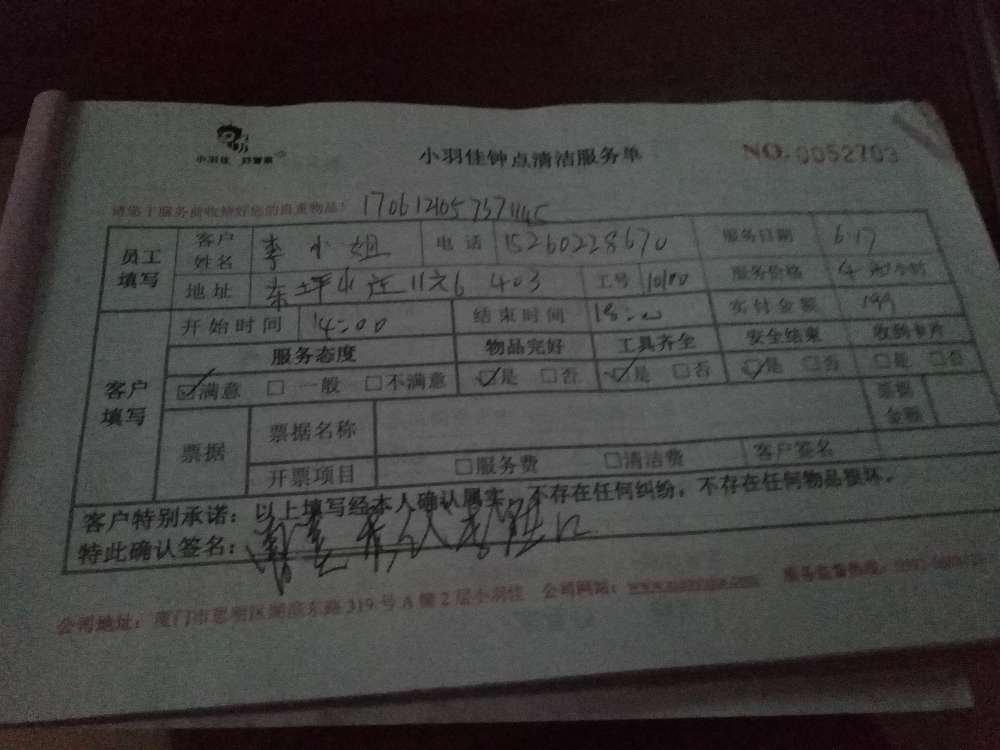 小羽佳 好管家
小羽佳钟点清洁服务单
NO. 0052703
请您于服务前收拾好您的贵重物品!
员工填写 客户姓名 李小姐 电话 15260228670 服务日期 6.17
地址 403 工号 服务价格 4小时
客户填写 开始时间 14:00 结束时间 18:00 实付金额 199
服务态度 物品完好 工具齐全 安全结束 收到卡片
☑满意 □一般 □不满意 ☑是 □否 ☑是 □否 ☑是 □否 □是 □否
票据 票据名称 票据金额
开票项目 □服务费 □清洁费 客户签名
客户特别承诺:以上填写经本人确认属实,不存在任何纠纷,不存在任何物品损坏。
特此确认签名:
公司地址:厦门市思明区湖滨东路319号A幢2层小羽佳 公司网站: 服务监督热线: